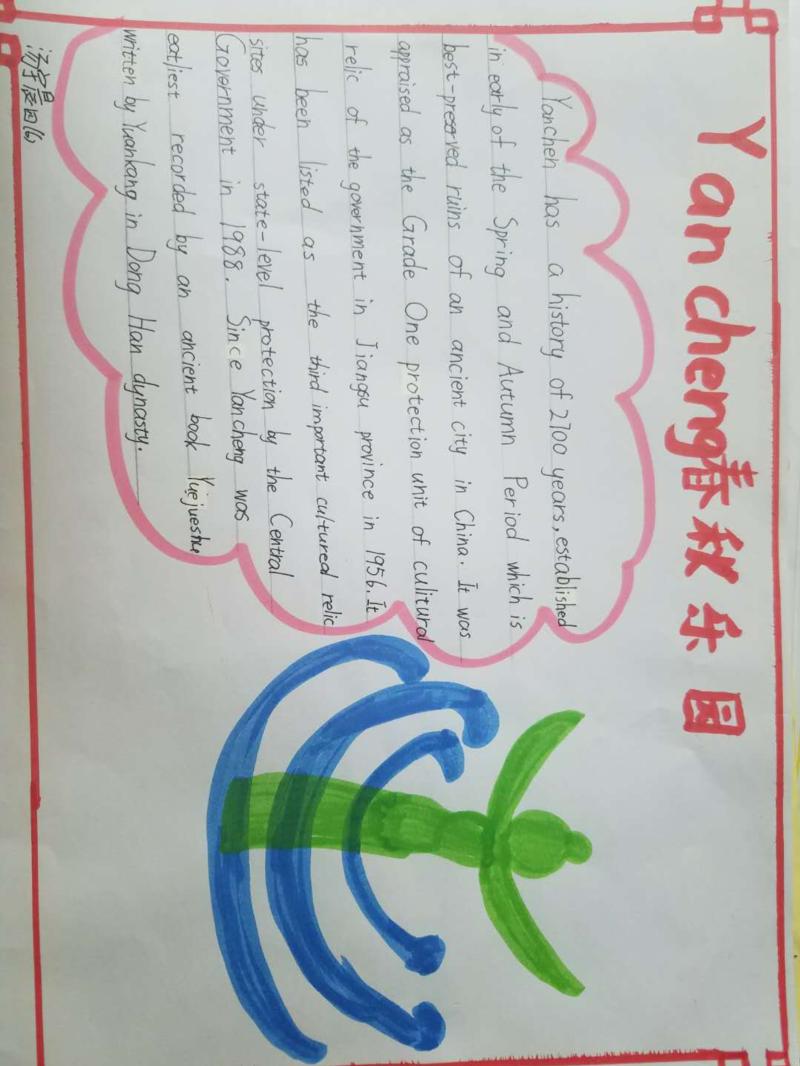 Yancheng春秋乐园
Yancheh has a history of 2700 years, established
in early of the Spring and Autumn Period which is
best-preserved ruins of an ancient city in China. It was
appraised as the Grade One protection unit of culitural
relic of the government in Jiangsu province in 1956. It
has been listed as the third important cultured relic
sites under state-level protection by the Central
Government in 1988. Since Yancheng was
eatliest recorded by an ancient book Yuejueshu
written by Yuankang in Dong Han dynasty.
汤宇晨四(6)